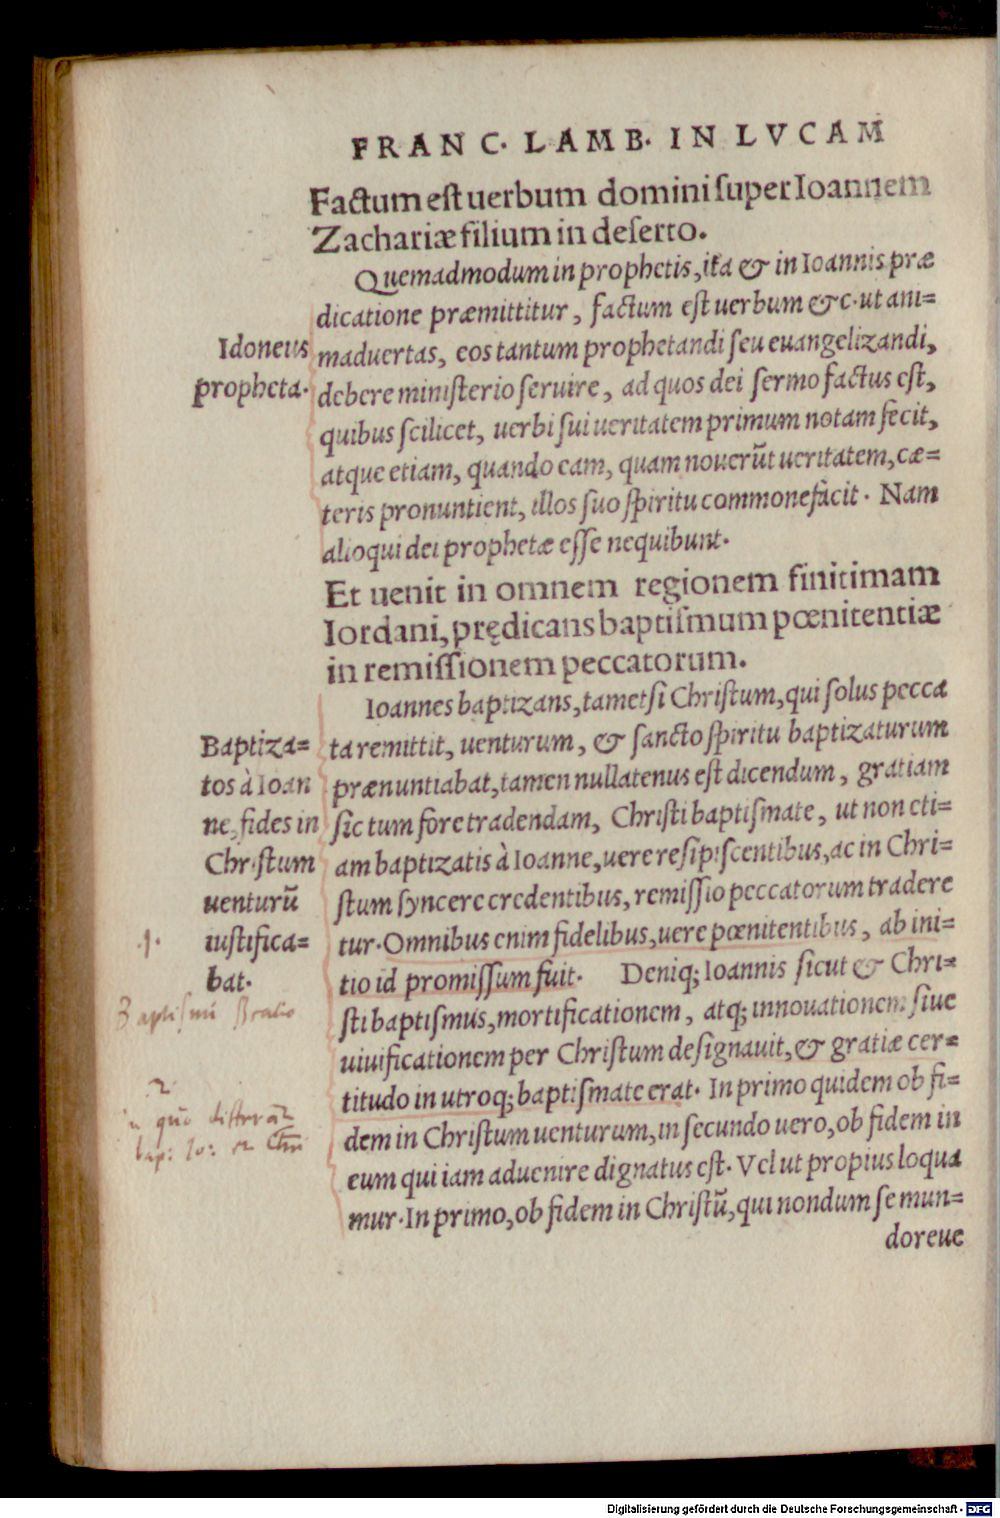 FRANC. LAMB. IN LVCAM
Factum est uerbum domini super Ioannem
Zachariæ filium in deserto.
Quemadmodum in prophetis, ita & in Ioannis præ
dicatione præmittitur, factum est uerbum &c. ut ani=
maduertas, eos tantum prophetandi seu euangelizandi,
debere ministerio seruire, ad quos dei sermo factus est,
quibus scilicet, uerbi sui ueritatem primum notam fecit,
atque etiam, quando eam, quam nouerũt ueritatem, cæ=
teris pronuntient, illos suo spiritu commonefacit. Nam
alioqui dei prophetæ esse nequibunt.
Idoneus
propheta.
Et uenit in omnem regionem finitimam
Iordani, prędicans baptismum pœnitentiæ
in remissionem peccatorum.
Ioannes baptizans, tametsi Christum, qui solus pecca
ta remittit, uenturum, & sancto spiritu baptizaturum
prænuntiabat, tamen nullatenus est dicendum, gratiam
sic tum fore tradendam, Christi baptismate, ut non eti=
am baptizatis à Ioanne, uere resipiscentibus, ac in Chri=
stum syncere credentibus, remissio peccatorum tradere
tur. Omnibus enim fidelibus, uere pœnitentibus, ab ini=
tio id promissum fuit. Deniq; Ioannis sicut & Chri=
sti baptismus, mortificationem, atq; innouationem siue
uiuificationem per Christum designauit, & gratiæ cer=
titudo in utroq; baptismate erat. In primo quidem ob fi=
dem in Christum uenturum, in secundo uero, ob fidem in
eum qui iam aduenire dignatus est. Vel ut propius loqua
mur. In primo, ob fidem in Christũ, qui nondum se mun=
do reue
Baptiza=
tos à Ioan
ne, fides in
Christum
uenturũ
iustifica=
bat.
.1.
Baptismi
2
bap: Io:
Digitalisierung gefördert durch die Deutsche Forschungsgemeinschaft - DFG